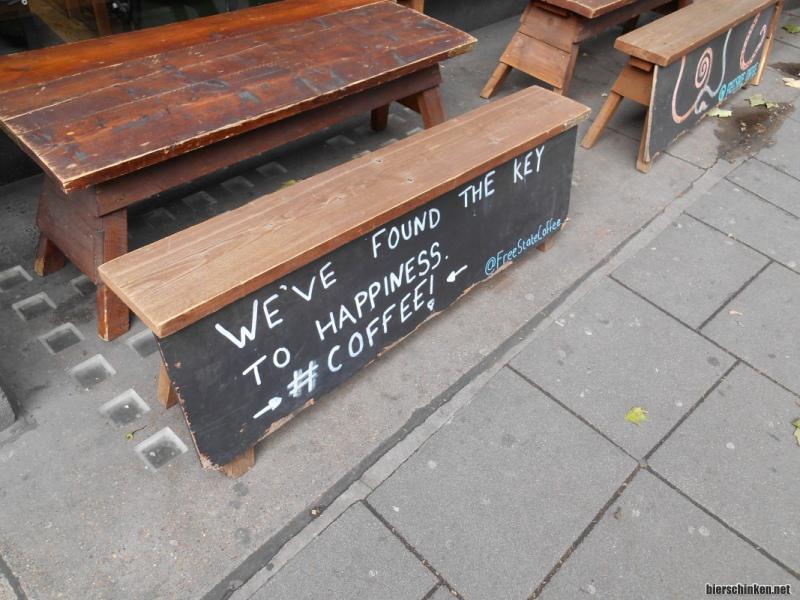 WE'VE FOUND THE KEY
TO HAPPINESS.
→ #COFFEE! ←
@FreeStateCoffee
bierschinken.net